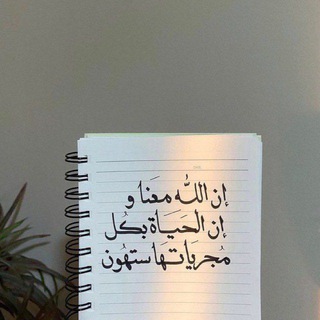 إن اللّٰه معَنا و
إن الحَيَاة بكُل
مُجريَاتهَا ستهُون